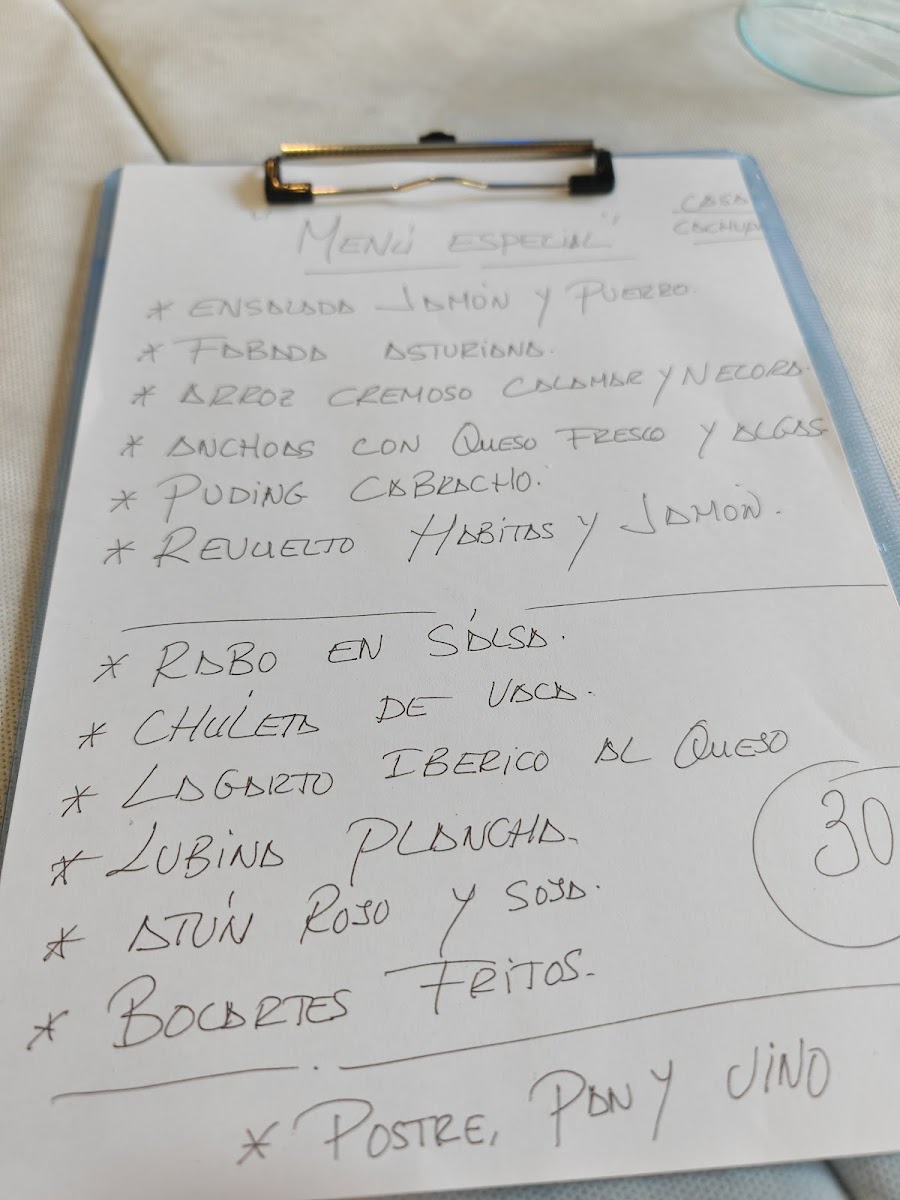 "MENÚ ESPECIAL"
CASA
* ENSALADA JAMÓN Y PUERRO.
* FABADA ASTURIANA.
* ARROZ CREMOSO CALAMAR Y NECORA.
* ANCHOAS CON QUESO FRESCO Y ALGAS
* PUDING CABRACHO.
* REVUELTO HABITAS Y JAMÓN.
* RABO EN SALSA.
* CHULETA DE VACA.
* LAGARTO IBERICO AL QUESO
30
* LUBINA PLANCHA.
* ATÚN ROJO Y SOJA.
* BOCARTES FRITOS.
* POSTRE, PAN Y VINO